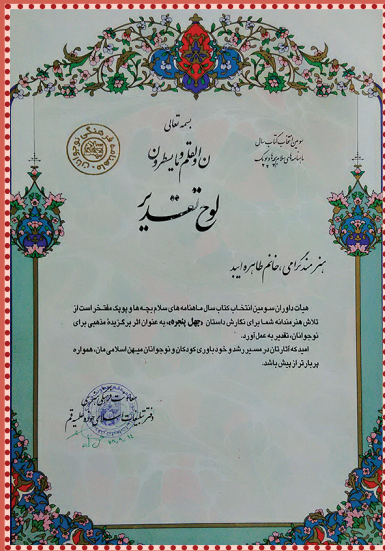 بسمه تعالی
ن والقلم و ما یسطرون
سومین انتخاب کتاب سال
ماهنامه‌های سلام بچه‌ها و پوپک
ماهنامه فرهنگی نوجوانان
لوح تقدیر
هنرمند گرامی، خانم طاهره ایبد
هیأت داوران سومین انتخاب کتاب سال ماهنامه های سلام بچه‌ها و پوپک مفتخر است از
تلاش هنرمندانه شما برای نگارش داستان «چهل پنجره» به عنوان اثر برگزیدهٔ مذهبی برای
نوجوانان، تقدیر به عمل آورد.
امید که آثارتان در مسیر رشد و خودباوری کودکان و نوجوانان میهن اسلامی‌مان، همواره
پربارتر از پیش باشد.
معاونت فرهنگی
دفتر تبلیغات اسلامی حوزه علمیه قم